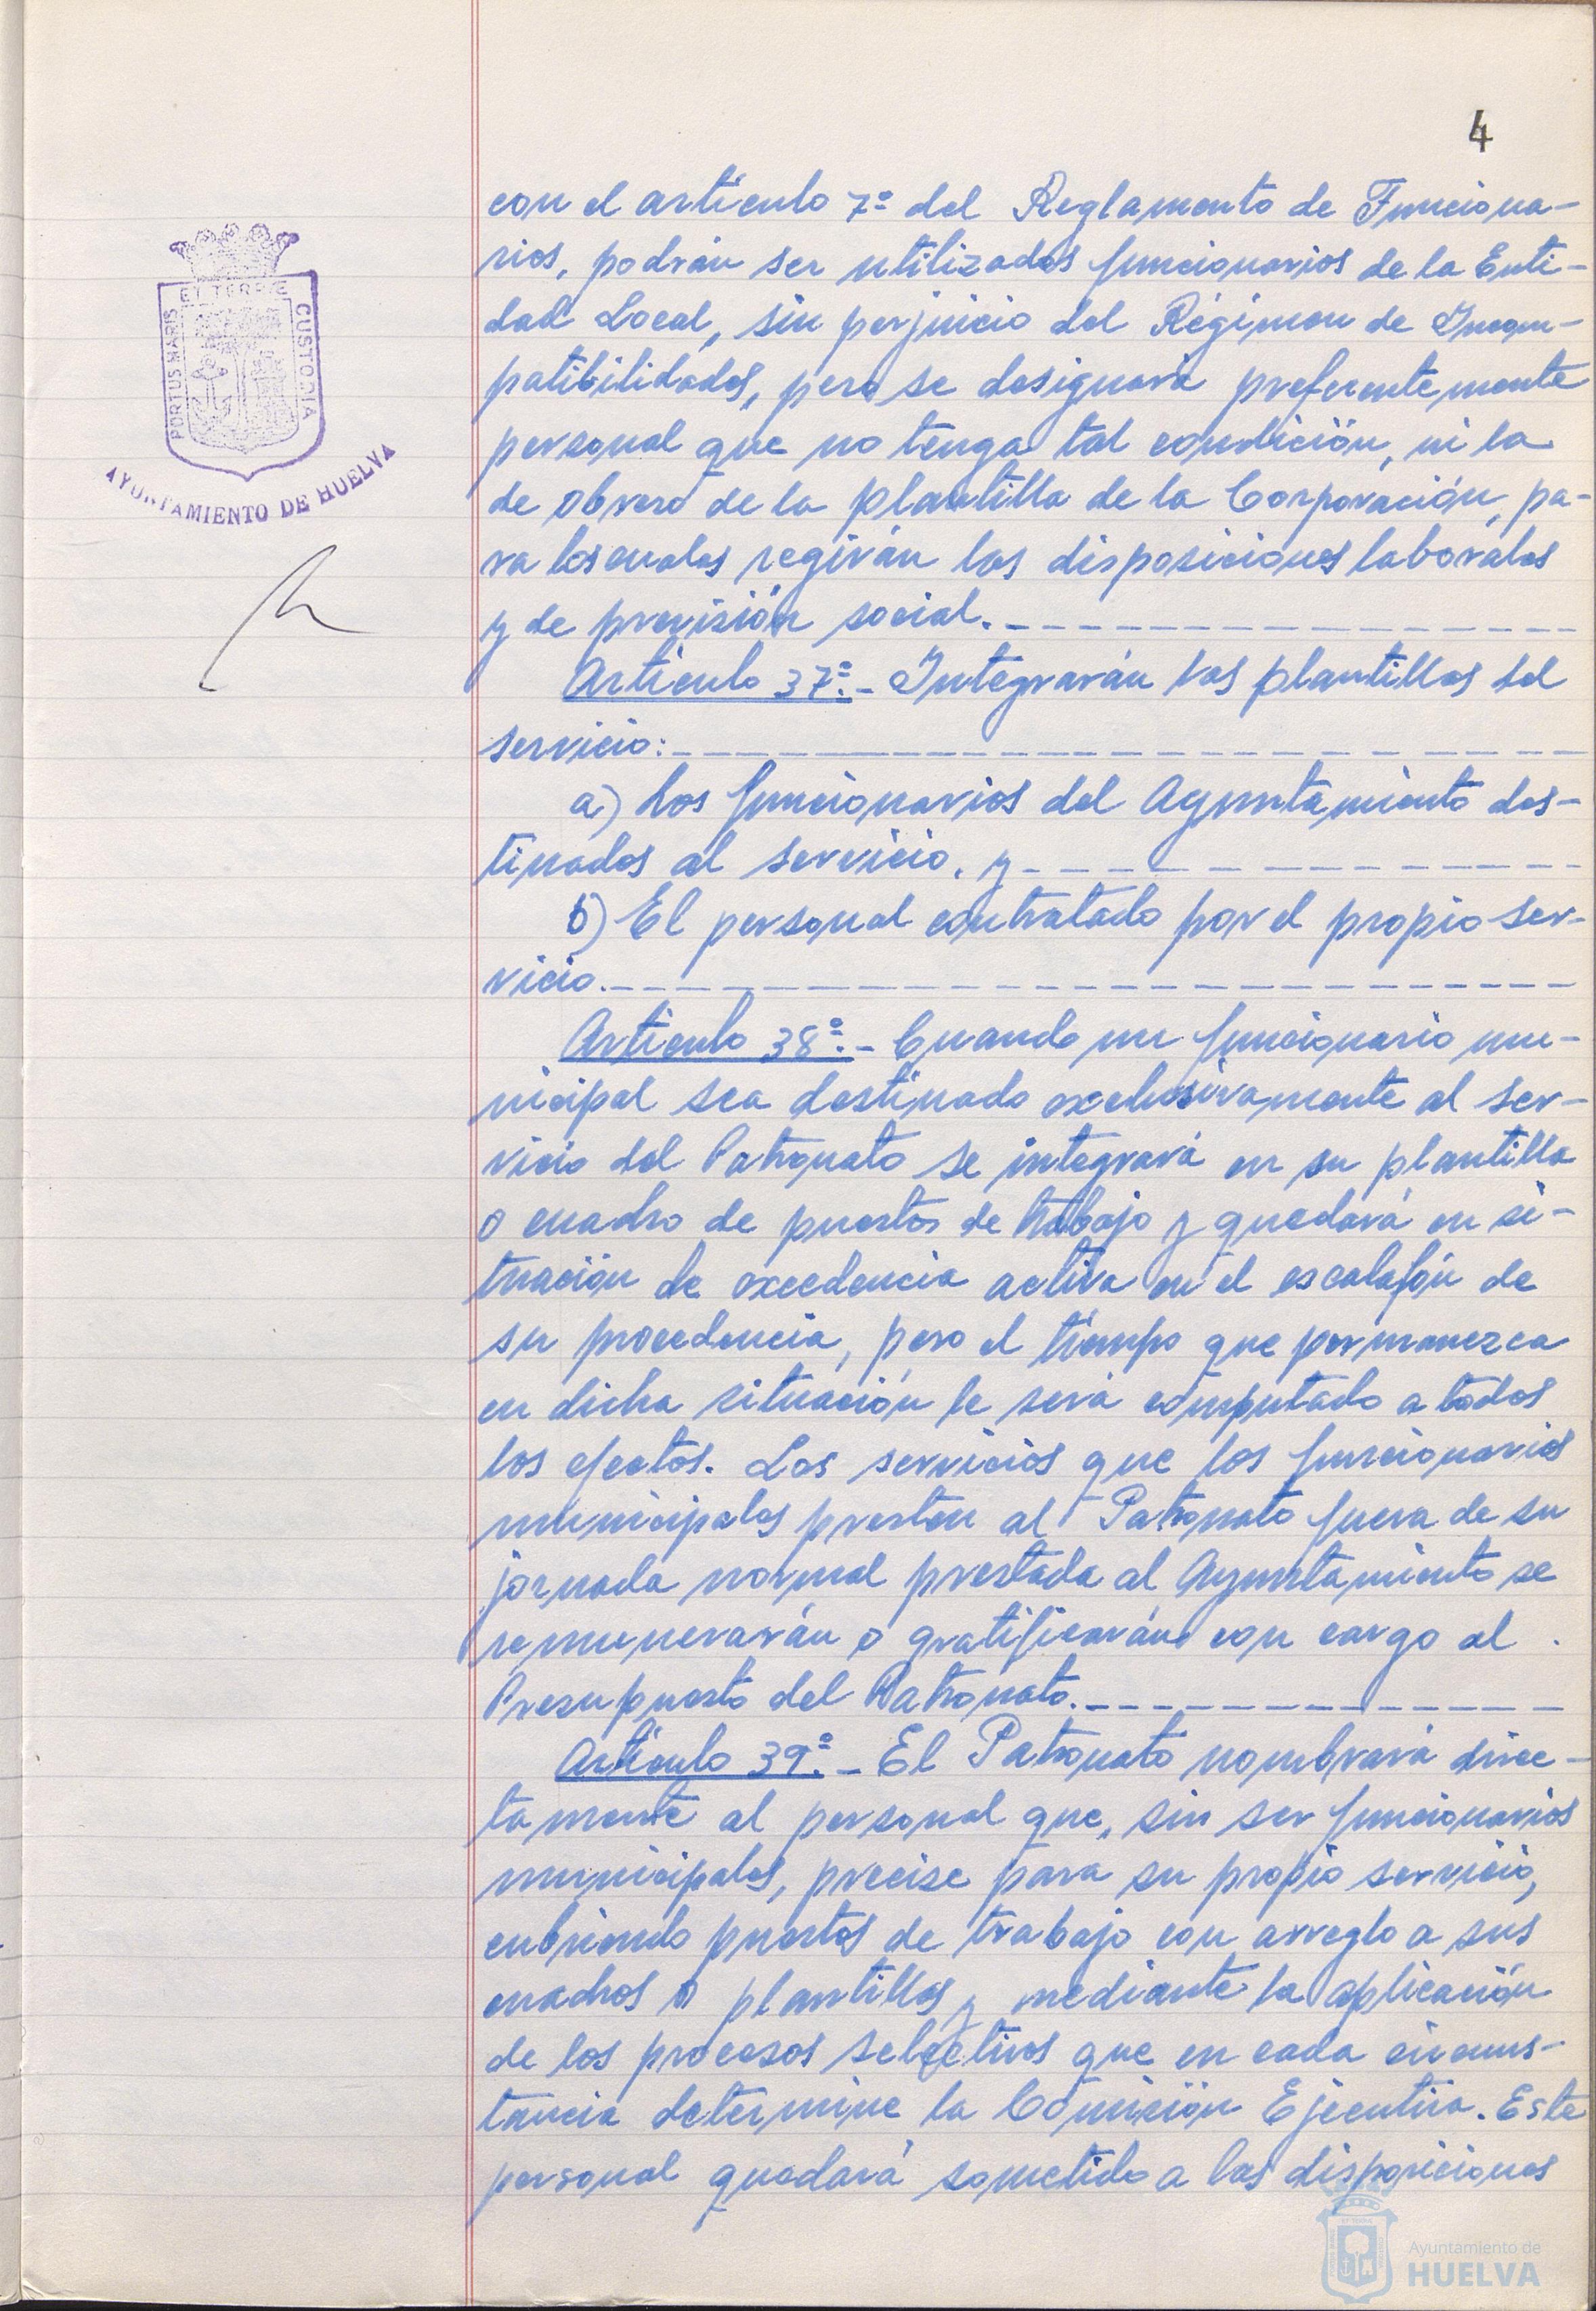 4
con el artículo 7º del Reglamento de Funciona-
rios, podrán ser utilizados funcionarios de la Enti-
dad Local, sin perjuicio del Régimen de Incom-
patibilidades, pero se designará preferentemente
personal que no tenga tal condición, ni la
de obrero de la plantilla de la Corporación, pa-
ra los cuales regirán las disposiciones laborales
y de previsión social.
Artículo 37º.- Integrarán las plantillas del
servicio:
a) Los funcionarios del Ayuntamiento des-
tinados al servicio, y
b) El personal contratado por el propio ser-
vicio.
Artículo 38º.- Cuando un funcionario mu-
nicipal sea destinado exclusivamente al ser-
vicio del Patronato se integrará en su plantilla
o cuadro de puestos de trabajo y quedará en si-
tuación de excedencia activa en el escalafón de
su procedencia, pero el tiempo que permanezca
en dicha situación le será computado a todos
los efectos. Los servicios que los funcionarios
municipales presten al Patronato fuera de su
jornada normal prestada al Ayuntamiento se
remunerarán o gratificarán con cargo al
Presupuesto del Patronato.
Artículo 39º.- El Patronato nombrará direc-
tamente al personal que, sin ser funcionarios
municipales, precise para su propio servicio,
cubriendo puestos de trabajo con arreglo a sus
cuadros o plantillas y mediante la aplicación
de los procesos selectivos que en cada circuns-
tancia determine la Comisión Ejecutiva. Este
personal quedará sometido a las disposiciones
PORTUS MARIS
ET TERRE
CUSTODIA
AYUNTAMIENTO DE HUELVA
Ayuntamiento de
HUELVA